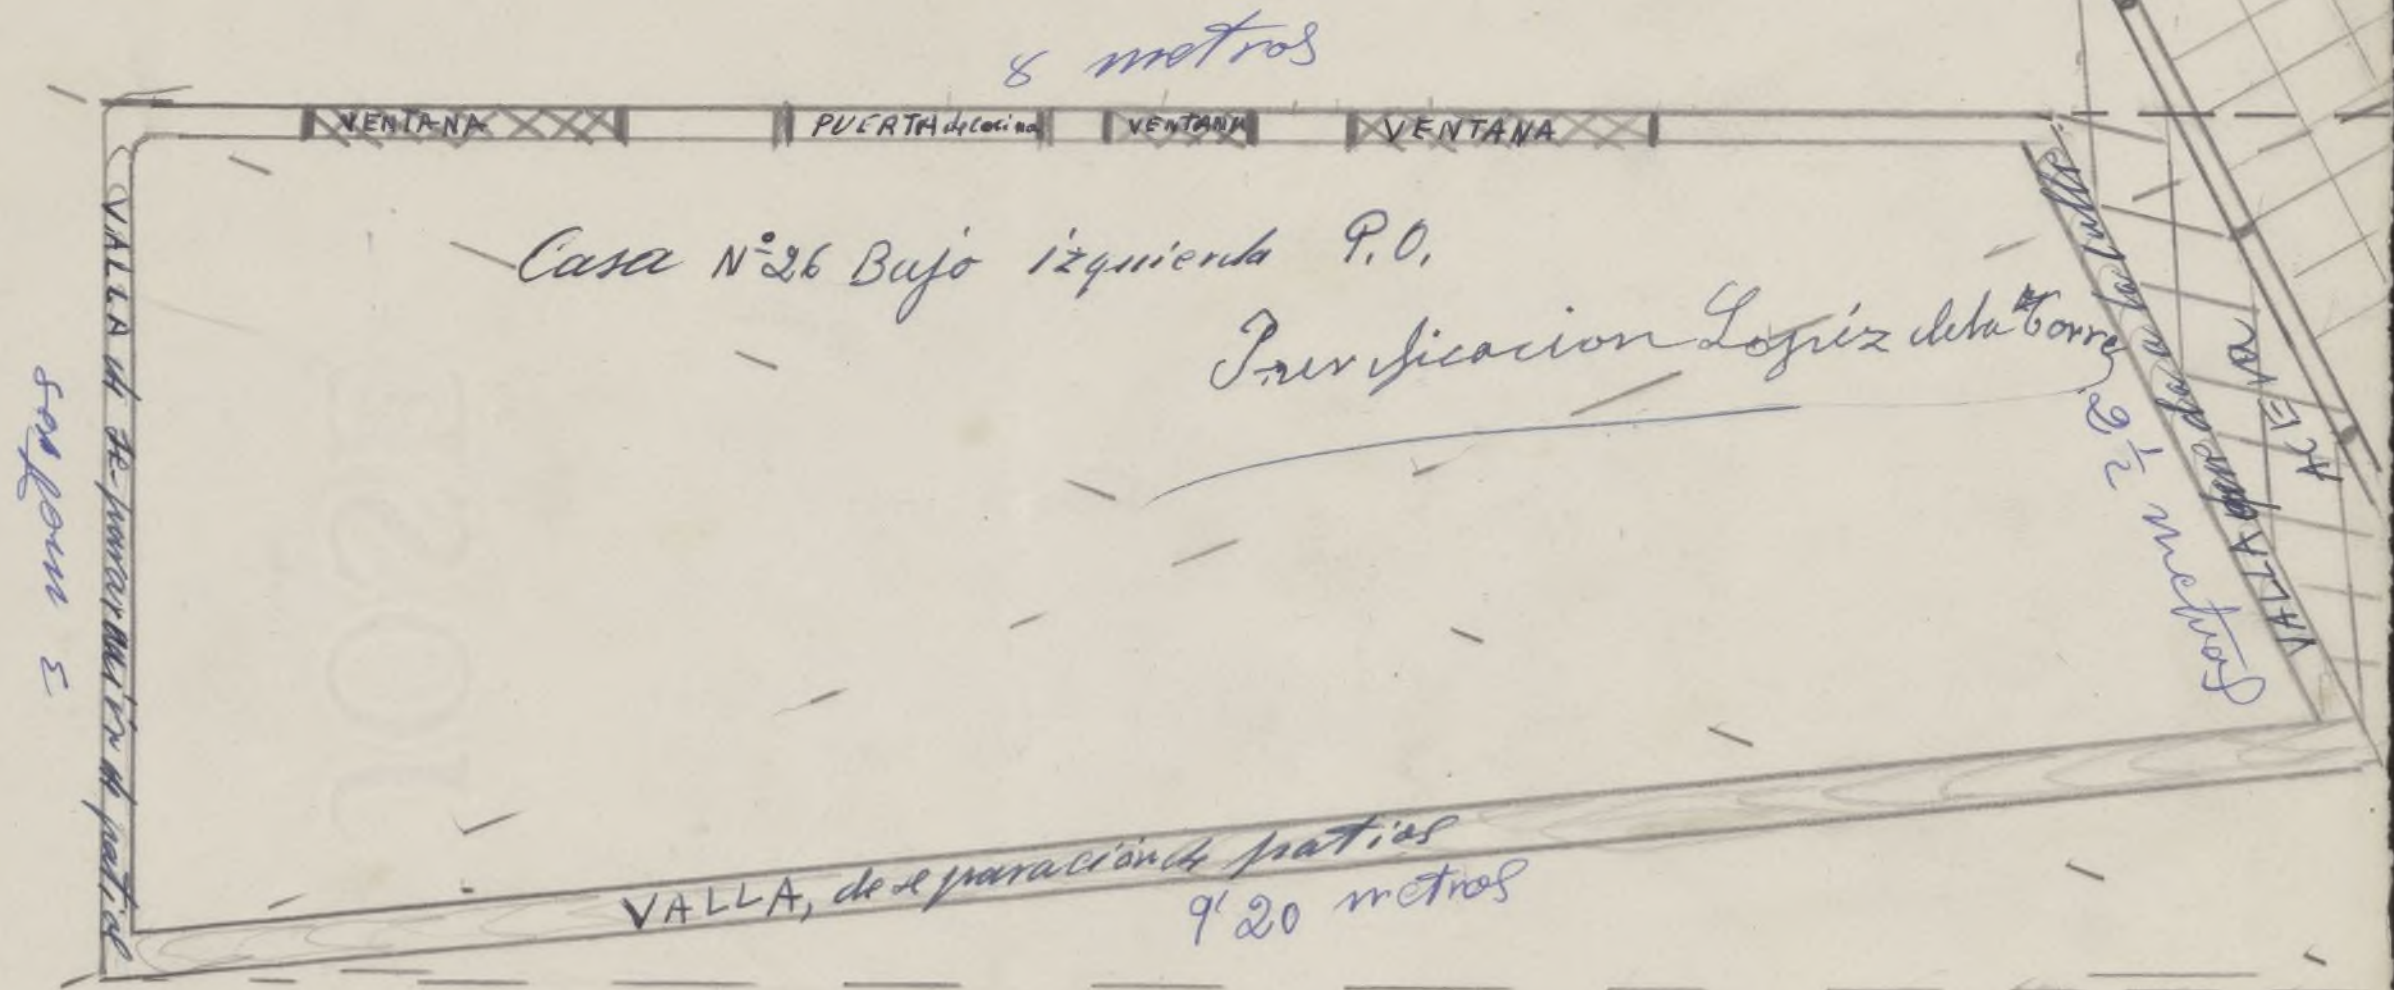 8 metros
VENTANA
PUERTA de Cocina
VENTANA
VENTANA
Casa Nº 26 Bajo izquierda P.O.
Purificacion López de la Torre
VALLA de separación de patios
3 metros
2 1/2 metros
VALLA que da a la calle
ACERA
VALLA, de separación de patios
9'20 metros
JOSE